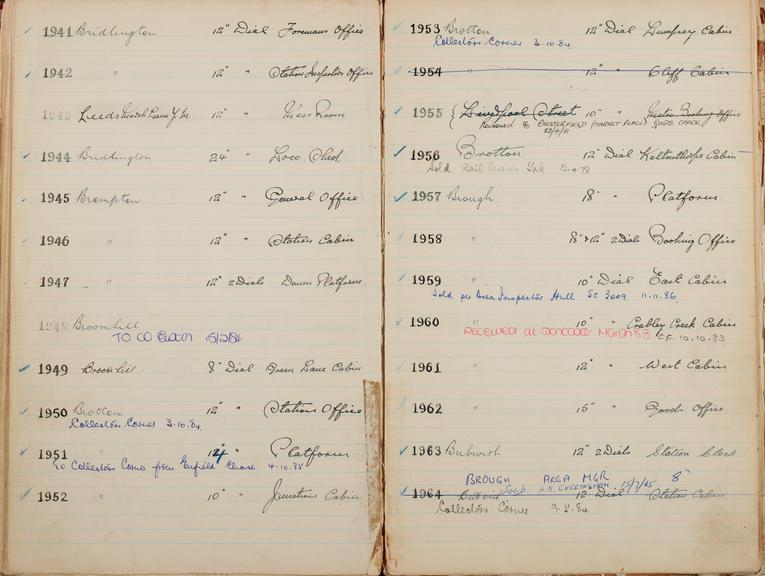 1941 Bridlington 12" Dial Foremans Office
1942 " 12" " Station Inspectors Office
1943 Leeds Marsh Lane Y.M. 12" " Mess Room
1944 Bridlington 24" " Loco. Shed
1945 Brompton 12" " General Office
1946 " 12" " Station Cabin
1947 " 12" 2 Dials Down Platform.
1948 Broomhill
TO CO 15/2/84
1949 Broomhill 8" Dial Green Lane Cabin
1950 Brotton 12" " Station Office
Collectors Corner 3.10.84.
1951 " " Platform
To Collectors Corner from Enfield Chase 4.10.85
1952 " 10" " Junction Cabin
1953 Brotton 12" Dial Lumpsey Cabin
Collectors Corner 3.10.84
1954 " 12" " Cliff Cabin
1955 { Liverpool Street 10" " Metro Booking Office
Renamed to CHESTERFIELD (MARKET PLACE) GOODS OFFICE.
1956 Brotton 12" Dial Kiltonthorpe Cabin
Sold Rail York 12.4.78
1957 Brough 18" " Platform
1958 " 18" & 12" 2 Dials Booking Office
1959 " 10" Dial East Cabin
Sold per Area Inspector Hull SC 3009. 11.11.86.
1960 " 10" " Crabley Creek Cabin
RECEIVED at DONCASTER MARCH 83 C.C. 10.10.83
1961 " 12" " West Cabin
1962 " 15" " Goods Office
1963 Bubwith 12" 2 Dials Station Clock
BROUGH AREA MGR 8"
(SOLD) S.H. EVERINGHAM 15/7/85
1964 Bubwith 12" Dial Station Cabin
Collectors Corner 84